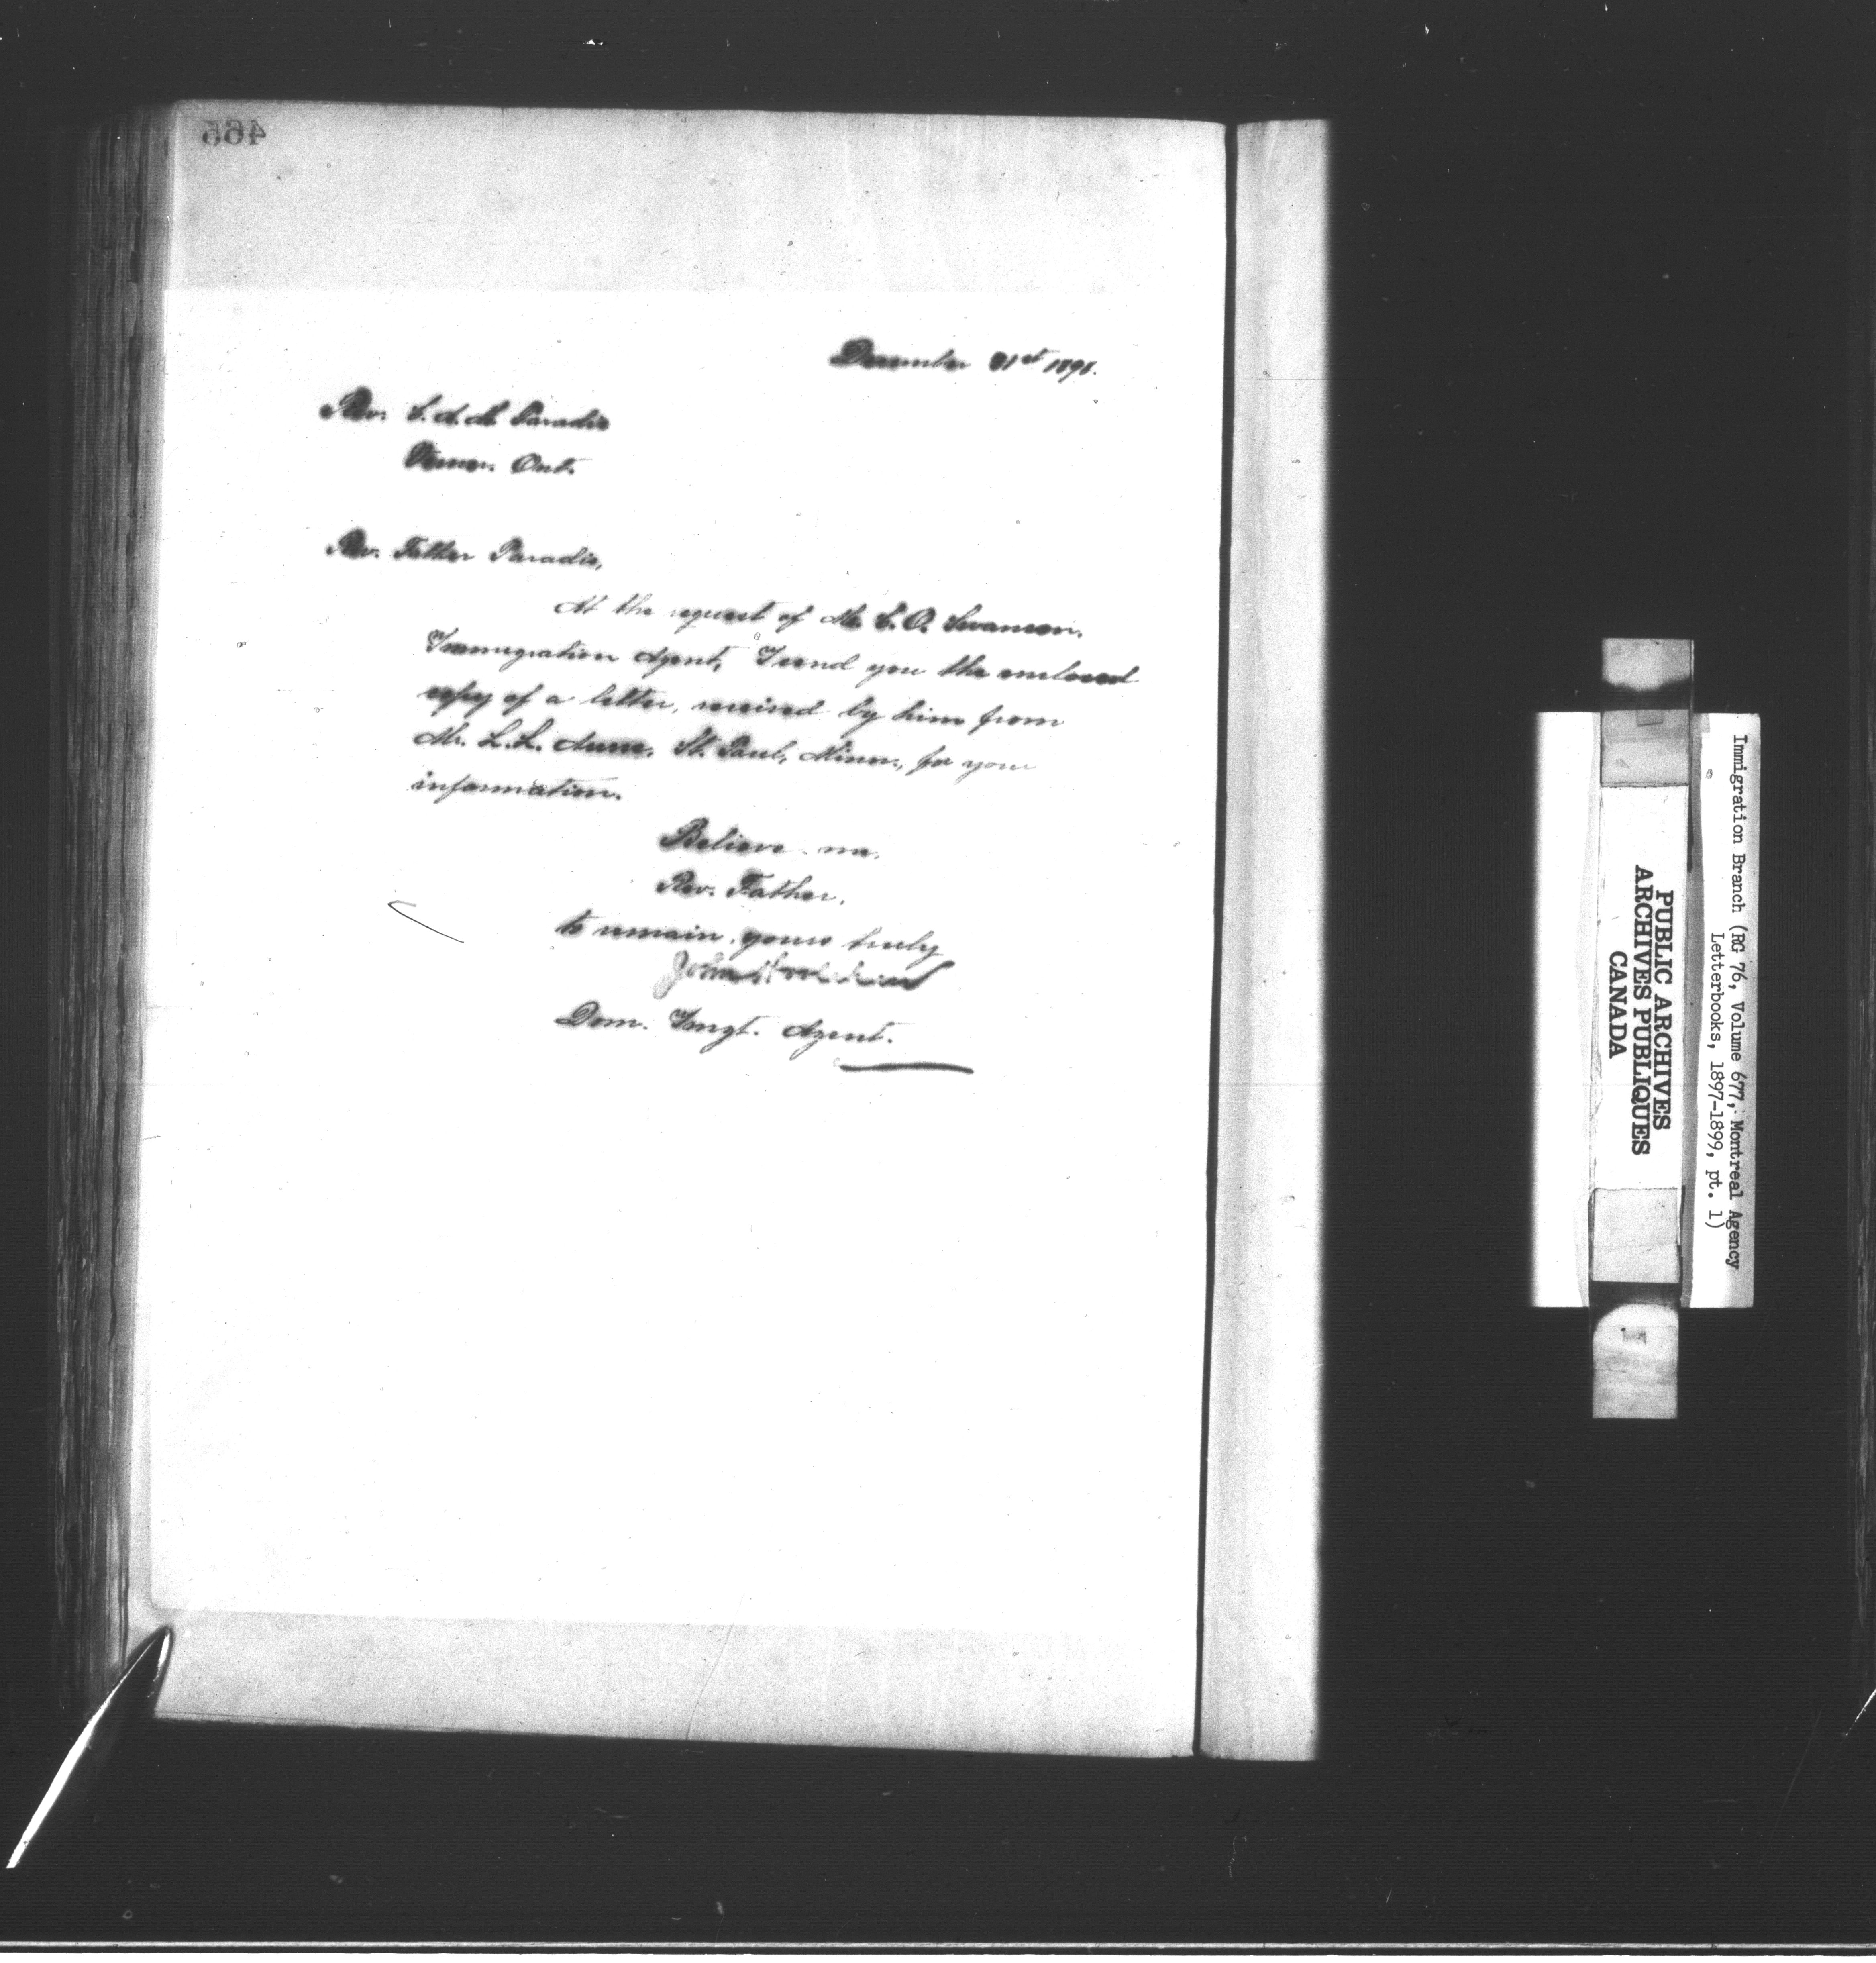 466
December 31st 1898.
Rev. C. A. M. Paradis
Verner. Ont.
Rev. Father Paradis,
At the request of Mr. C. O. Swanson,
Immigration Agent, I send you the enclosed
copy of a letter, received by him from
Mr. L. L. Aune, St. Paul, Minn., for your
information.
Believe me,
Rev. Father,
to remain, yours truly
John
Dom. Imgt. Agent.
Immigration Branch (RG 76, Volume 677, Montreal Agency
Letterbooks, 1897-1899, pt. 1)
PUBLIC ARCHIVES
ARCHIVES PUBLIQUES
CANADA